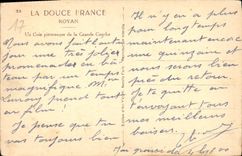 LA DOUCE FRANCE
ROYAN
Un Coin pittoresque de la Grande Conche
Nous avons fait
une très jolie
promenade en ba
teau par un temps
magnifique M.
tout
en film!
Je pense que tu
vas toujours bien
Il n'y en a plus
pour longtemps
maintenant encore
une quinzaine et
nous serons bien
Je te quitte en
t'envoyant tous
mes meilleurs
baisers.